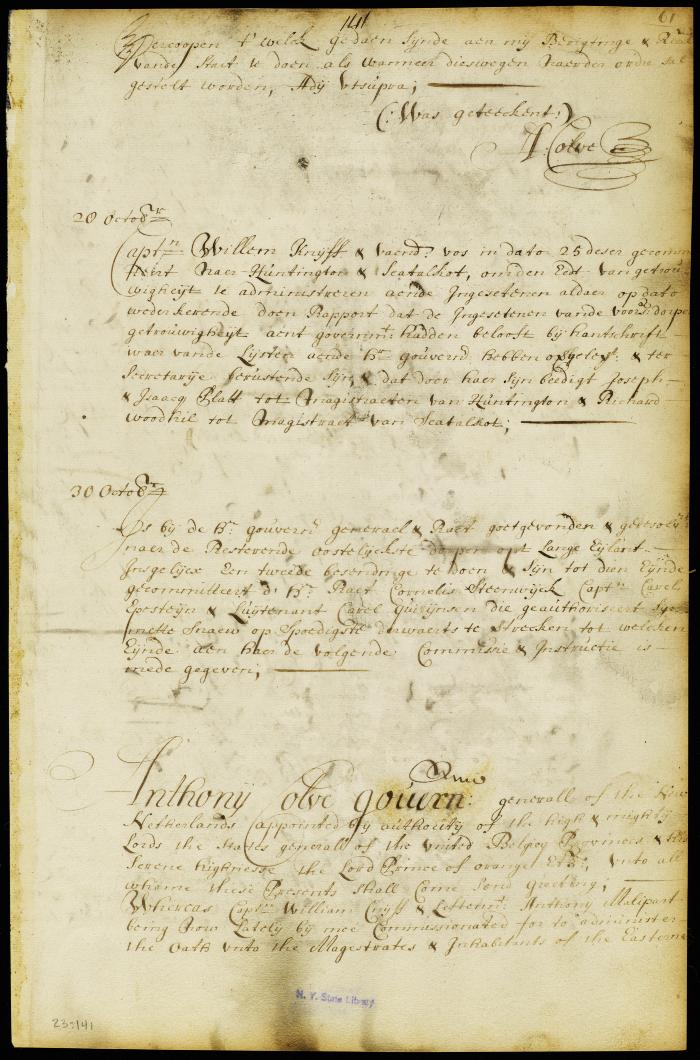 141
61
Vercoopen t' welck gedaen Synde aen mij Berigtinge &
vande Staet te doen als wanneer dieswegen Naerder ordre sal
gestelt worden, Adij Utsupra;
(: Was geteeckent:)
A Colve
28 Octobr
Captn Willem Knyff & Vaend. vos in dato 25 deser gecom
naer Huntington & Seatalkot, om den Eedt van getrou
wigheyt te administreren aende Ingesetenen aldaer op dato
wederkerende doen Rapport dat de Ingesetenen vande voors: dorpe
getrouwigheyt aent governmt: hadden belooft bij hantschrift
waer vande Lyster aende Hr gouvernr hebben &: ter
Secretarije berustende Sijn, & dat door haer Sijn beedigt Joseph
& Isaacq Platt tot Magistraeten van Huntington & Richard
woodhil tot Magistraet van Seatalkot;
30 Octobr
Is bij de Hr: gouvernr generael & Raet goetgevonden &
naer de Resterende oostelyckste dorpen opt Lange Eylant
Insgelijcx Een tweede besendinge te doen & Sijn tot dien Eynde
gecommitteert d' Hr: Raet Cornelis Steenwijck Captn Carel
Epesteijn & Luijtenant Carel Quirijnsen die geauthoriseert
mette Snaeuw op Spoedigste derwaerts te Strecken tot welcken
Eijnde aen haer de volgende Commissie & Instructie is
mede gegeven;
Anthony Colve gouern: generall of the New
Netherlands (appointed by authority of the high & mighty
Lords the States generall of the united Belgicq Provinces & His
Serene highnesse the Lord Prince of orange Etc:, unto all
whome these Presents shall Come Send greeting;
Whereas Captn William Cnyff & Lettent: Anthony Malipart
being Now Lately by mee Commissionated for to administer
the Oath unto the Magestrates & Inhabitants of the Easterne
N. Y. State Library
23:141